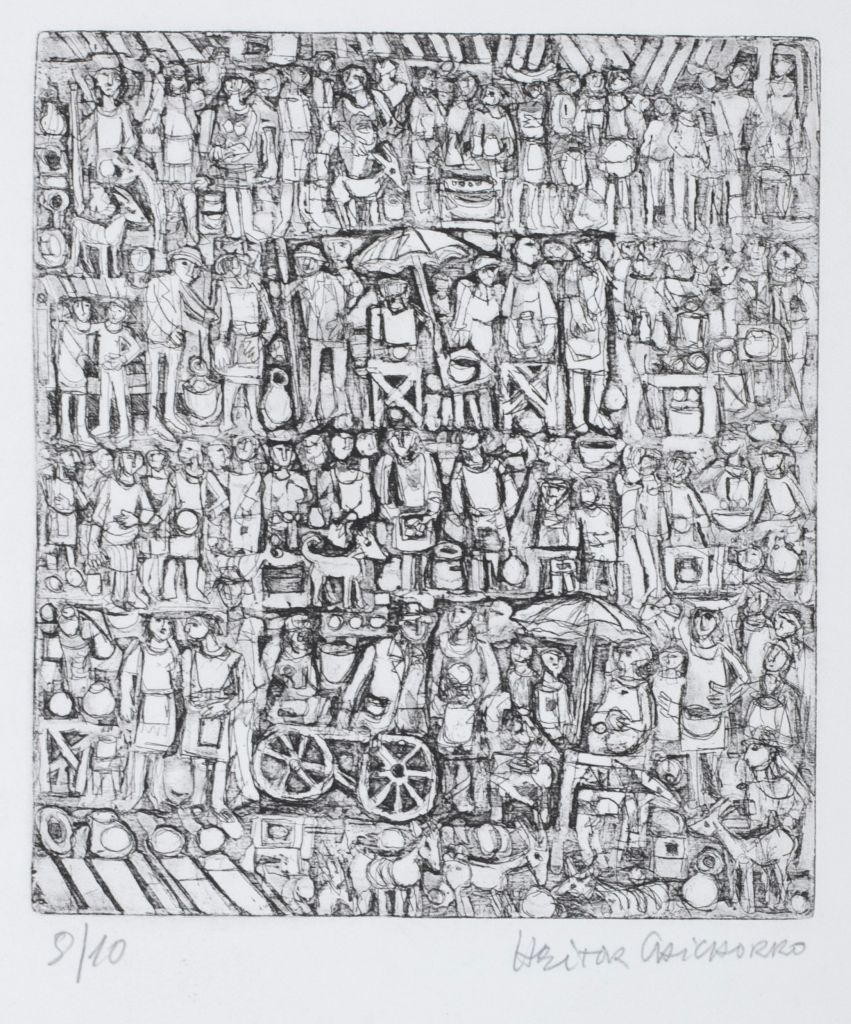 9/10
HEiTOR CHiCHORRO